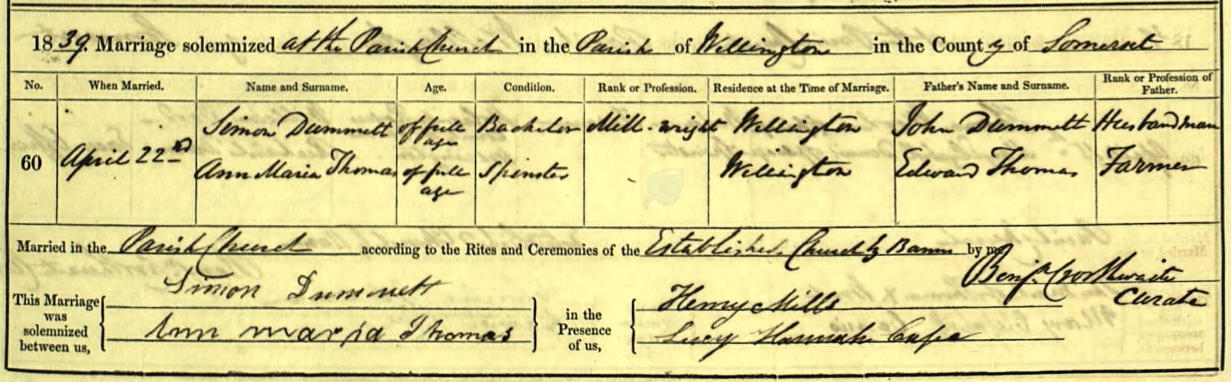 1839. Marriage solemnized at the Parish Church in the Parish of Wellington in the County of Somerset
No. When Married. Name and Surname. Age. Condition. Rank or Profession. Residence at the Time of Marriage. Father's Name and Surname. Rank or Profession of Father.
60 April 22nd Simon Dummett of full age Bachelor Mill-wright Wellington John Dummett Husbandman
Ann Maria Thomas of full age Spinster Wellington Edward Thomas Farmer
Married in the Parish Church according to the Rites and Ceremonies of the Established Church by Banns by me,
Benjn Crosthwaite
Curate
This Marriage was solemnized between us,
Simon Dummett
Ann maria Thomas
in the Presence of us,
Henry Mills
Lucy Hannah